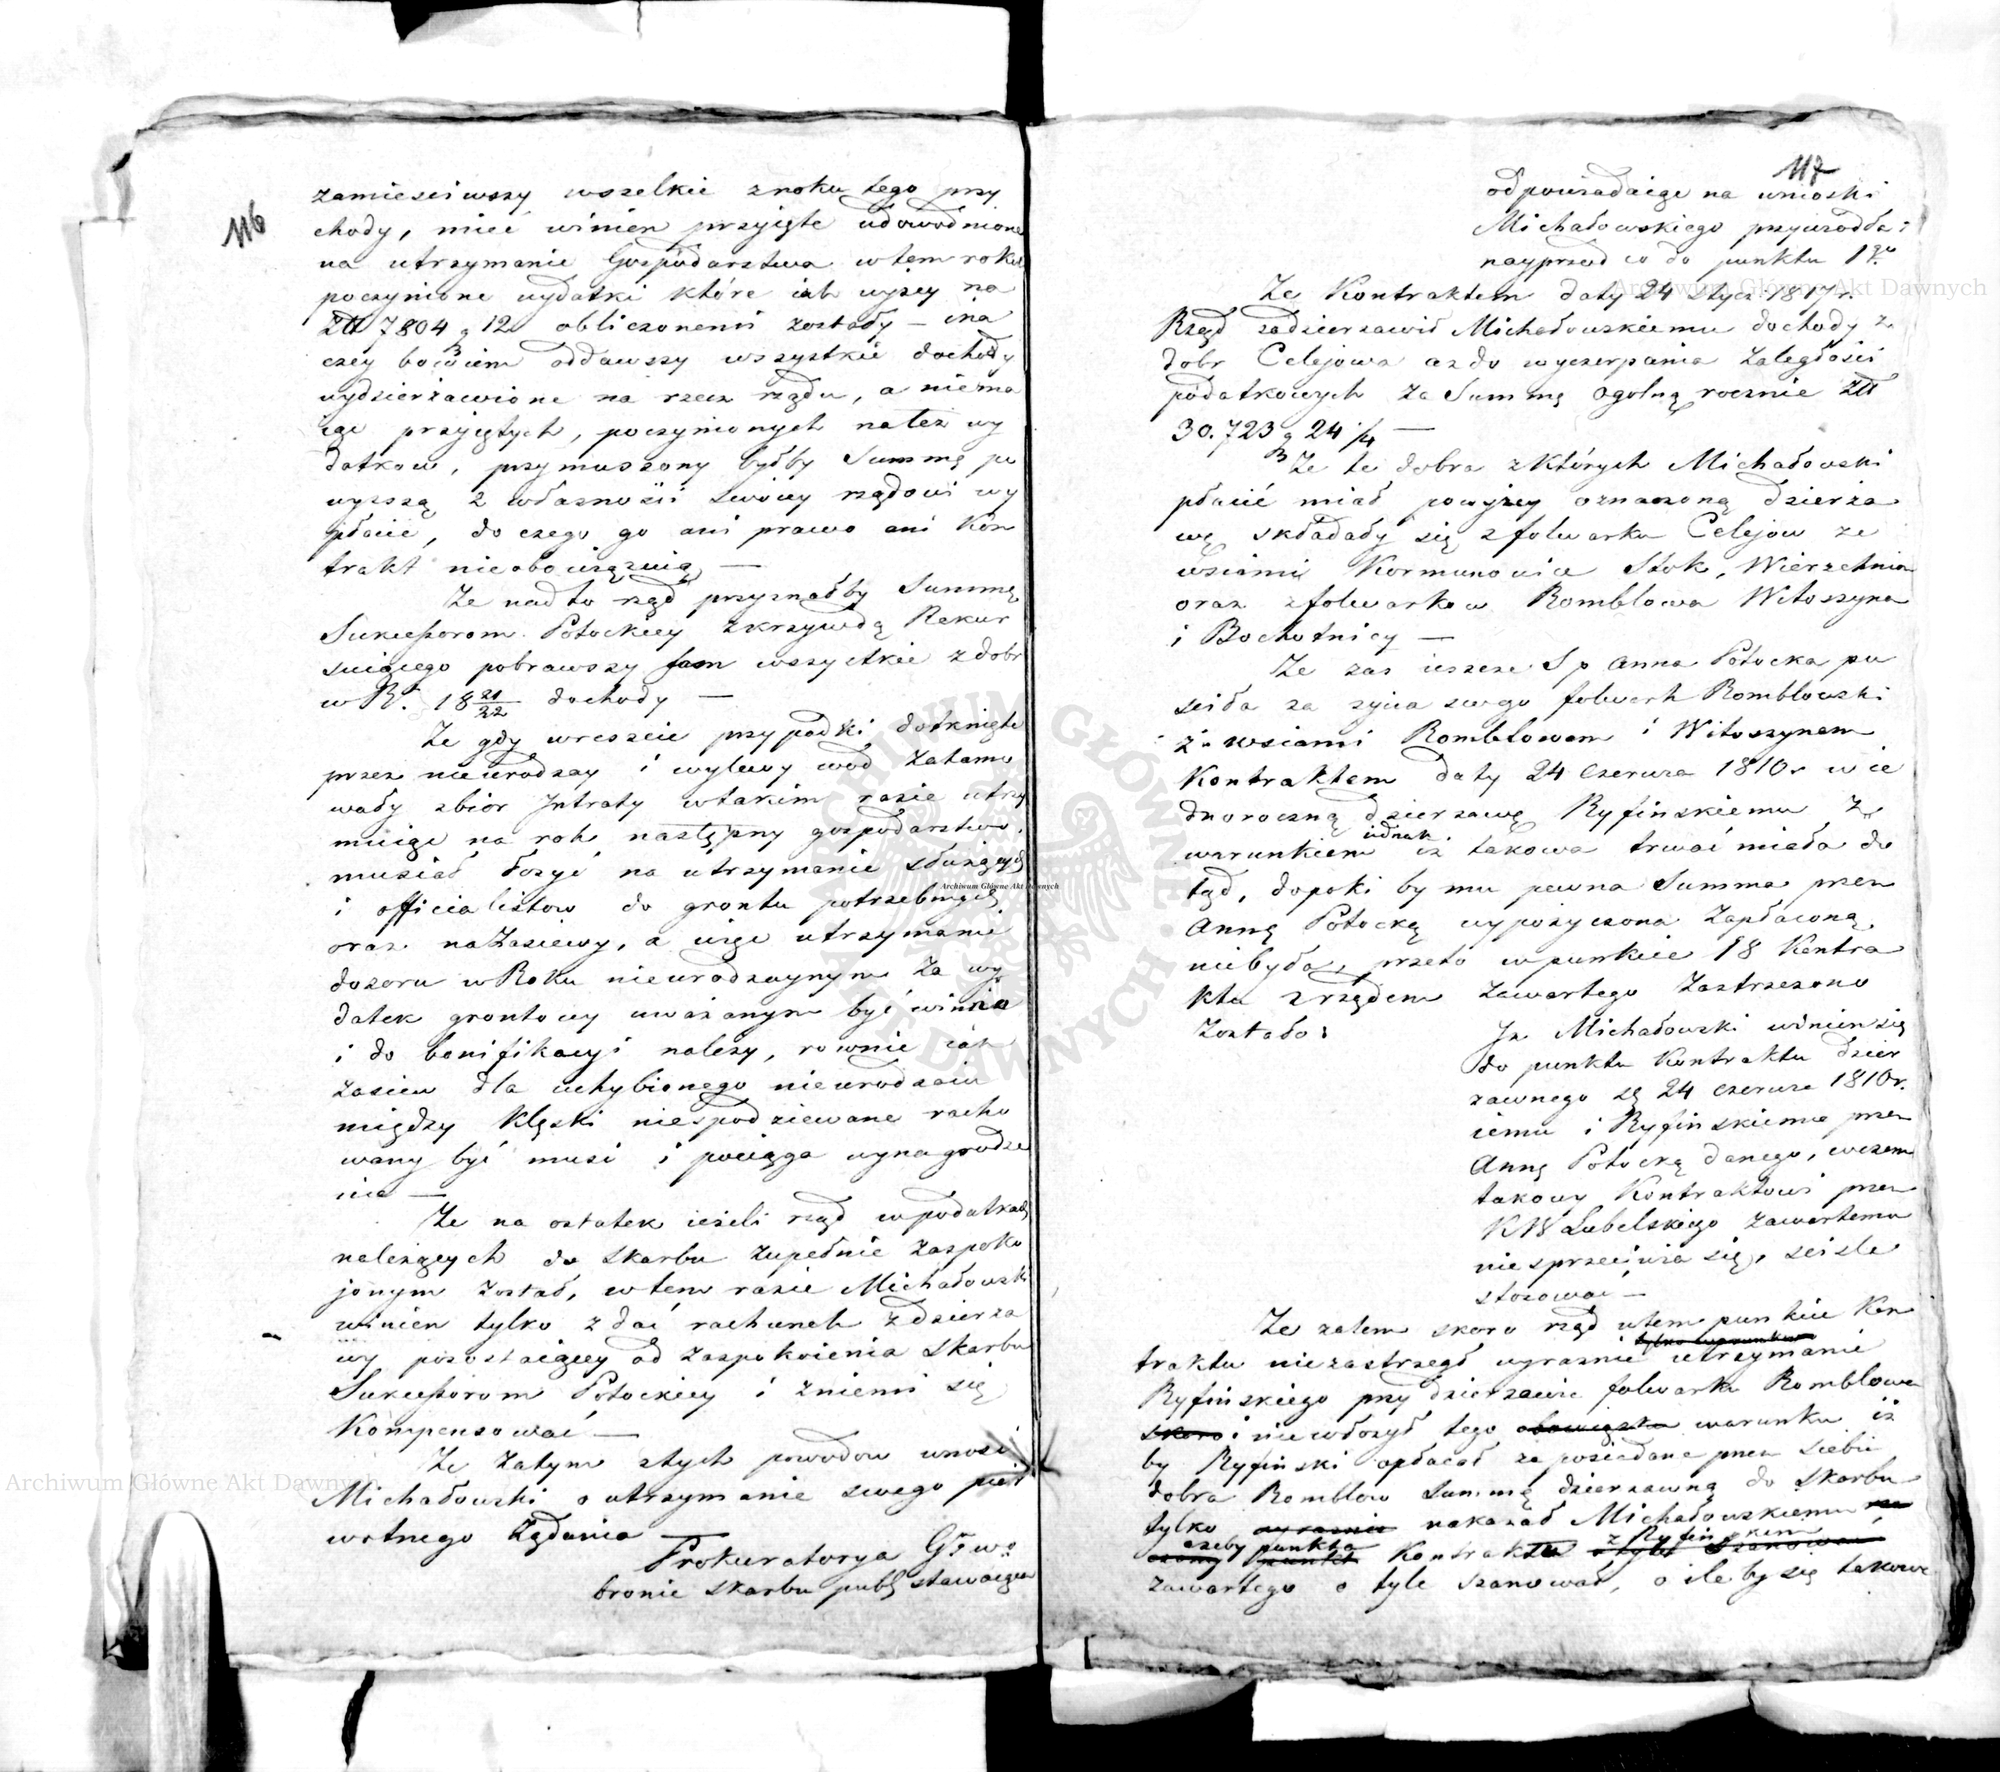 116
zamieściwszy wszelkie z roku tego przy
chody, mieć winien przyięte udowodnione
na utrzymanie Gospodarstwa w tem roku
poczynione wydatki które iak wyżey na
Złł 7804 g 12 obliczonemi zostały — ina
czey bowiem oddawszy wszystkie dochody
wydzierżawione na rzecz rządu, a niema
iąc przyiętych, poczynionych na też wy
datkow, przymuszony byłby Summę po
wyższą z własności swoiey rządowi wy
płacić, do czego go ani prawo ani Kon
trakt nieobowiązuią —
Że nad to rząd przyznałby Summę
Sukcessorom Potockiey z krzywdą Rekur
suiącego pobrawszy sam wszystkie z dobr
w Rr. 18 21/22 dochody —
Że gdy wreszcie przypadki dotknięte
przez nieurodzay i wylewy wód zatamo
wały zbior Intraty w takim razie utrzy
muiąc na rok następny gospodarstwo,
musiał łożyć na utrzymanie służących
i officialistow do gruntu potrzebnych
oraz na zasiewy, a więc utrzymanie
dozoru w Roku nieurodzaynym za wy
datek gruntowy uważanym być winno
i do bonifikacyi należy, rownie iak
zasiew dla uchybionego nieurodzaiu
między klęski niespodziewane racho
wany być musi i pociąga wynagrodze
nie —
Że na ostatek ieżeli rząd w podatkach
należących do Skarbu zupełnie zaspoko
jonym został, w tem razie Michałowski
winien tylko zdać rachunek z dzierża
wy pozostaiącey od zaspokoienia Skarbu
Sukcessorom Potockiey i z niemi się
Kompensować —
Że zatym z tych powodow wnosi
Michałowski o utrzymanie swego pier
wotnego żądania —
Prokuratorya Gł w
bronie Skarbu publ stawaiąca
117
odpowiadaiąc na wnioski
Michałowskiego przywodzi:
nayprzod co do punktu 1go
Że Kontraktem daty 24 Stycz. 1817 r.
Rząd zadzierzawił Michałowskiemu dochody z
dobr Celejowa aż do wyczerpania zaległości
podatkowych za Summę ogolną rocznie Złł
30.723 g 24 1/4 —
Że te dobra z których Michałowski
płacić miał powyżey oznaczoną dzierża
wę składały się z folwarku Celejow ze
wsiami Kormanowice Stok, Wierzchnia
oraz z folwarkow Rombłowa Witoszyna
i Bochotnicy —
Że zaś ieszcze S p Anna Potocka pu
sciła za życia swego folwark Rombłowski
z wsiami Rombłowem i Witoszynem
Kontraktem daty 24 Czerwca 1810 r w ie
dnoroczną dzierzawę Ryfińskiemu z
warunkiem iednak iż takowa trwać miała do
tąd, dopoki by mu pewna Summa przez
Annę Potocką wypożyczona zapłaconą
niebyła, przeto w punkcie 18 Kontra
ktu z rządem zawartego zastrzeżono
zostało:
Jz Michałowski winien się
do punktu Kontraktu dzier
zawnego z 24 Czerwca 1810 r.
iemu i Ryfińskiemu przez
Annę Potocką danego, w czem
takowy Kontraktowi przez
K W Lubelskiego zawartemu
niesprzeciwia się, ściśle
stosować —
Że zatem skoro rząd w tem punkcie Kon
tylko warunku
traktu niezastrzegł wyraźnie utrzymanie
Ryfińskiego przy dzierzawie folwarku Rombłowa
skoro i niewłożył tego obowiązku warunku iż
by Ryfiński opłacał za posiadane przez siebie
dobra Rombłow Summę dzierzawną do Skarbu
tylko wyraźnie nakazał Michałowskiemu
ażeby punkta Kontraktu z Ryfińskiem
zawartego o tyle szanował, o ile by się takowe